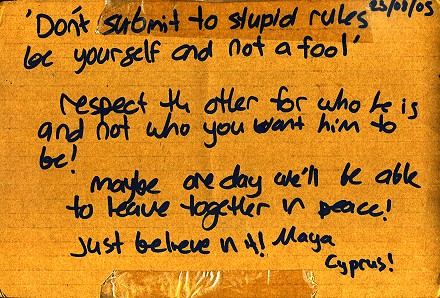 'Don't submit to stupid rules 23/08/05
be yourself and not a fool'
respect th other for who he is
and not who you want him to
be!
maybe one day we'll be able
to leave together in peace!
Just believe in it! Maya
Cyprus!